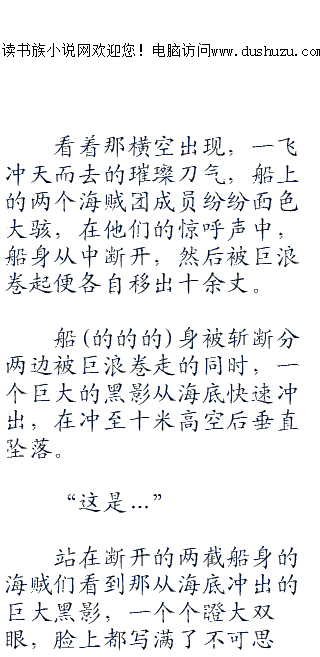 读书族小说网欢迎您！电脑访问www.dushuzu.com
看着那横空出现，一飞
冲天而去的璀璨刀气，船上
的两个海贼团成员纷纷面色
大骇，在他们的惊呼声中，
船身从中断开，然后被巨浪
卷起便各自移出十余丈。
船(的的的)身被斩断分
两边被巨浪卷走的同时，一
个巨大的黑影从海底快速冲
出，在冲至十米高空后垂直
坠落。
“这是...”
站在断开的两截船身的
海贼们看到那从海底冲出的
巨大黑影，一个个瞪大双
眼，脸上都写满了不可思